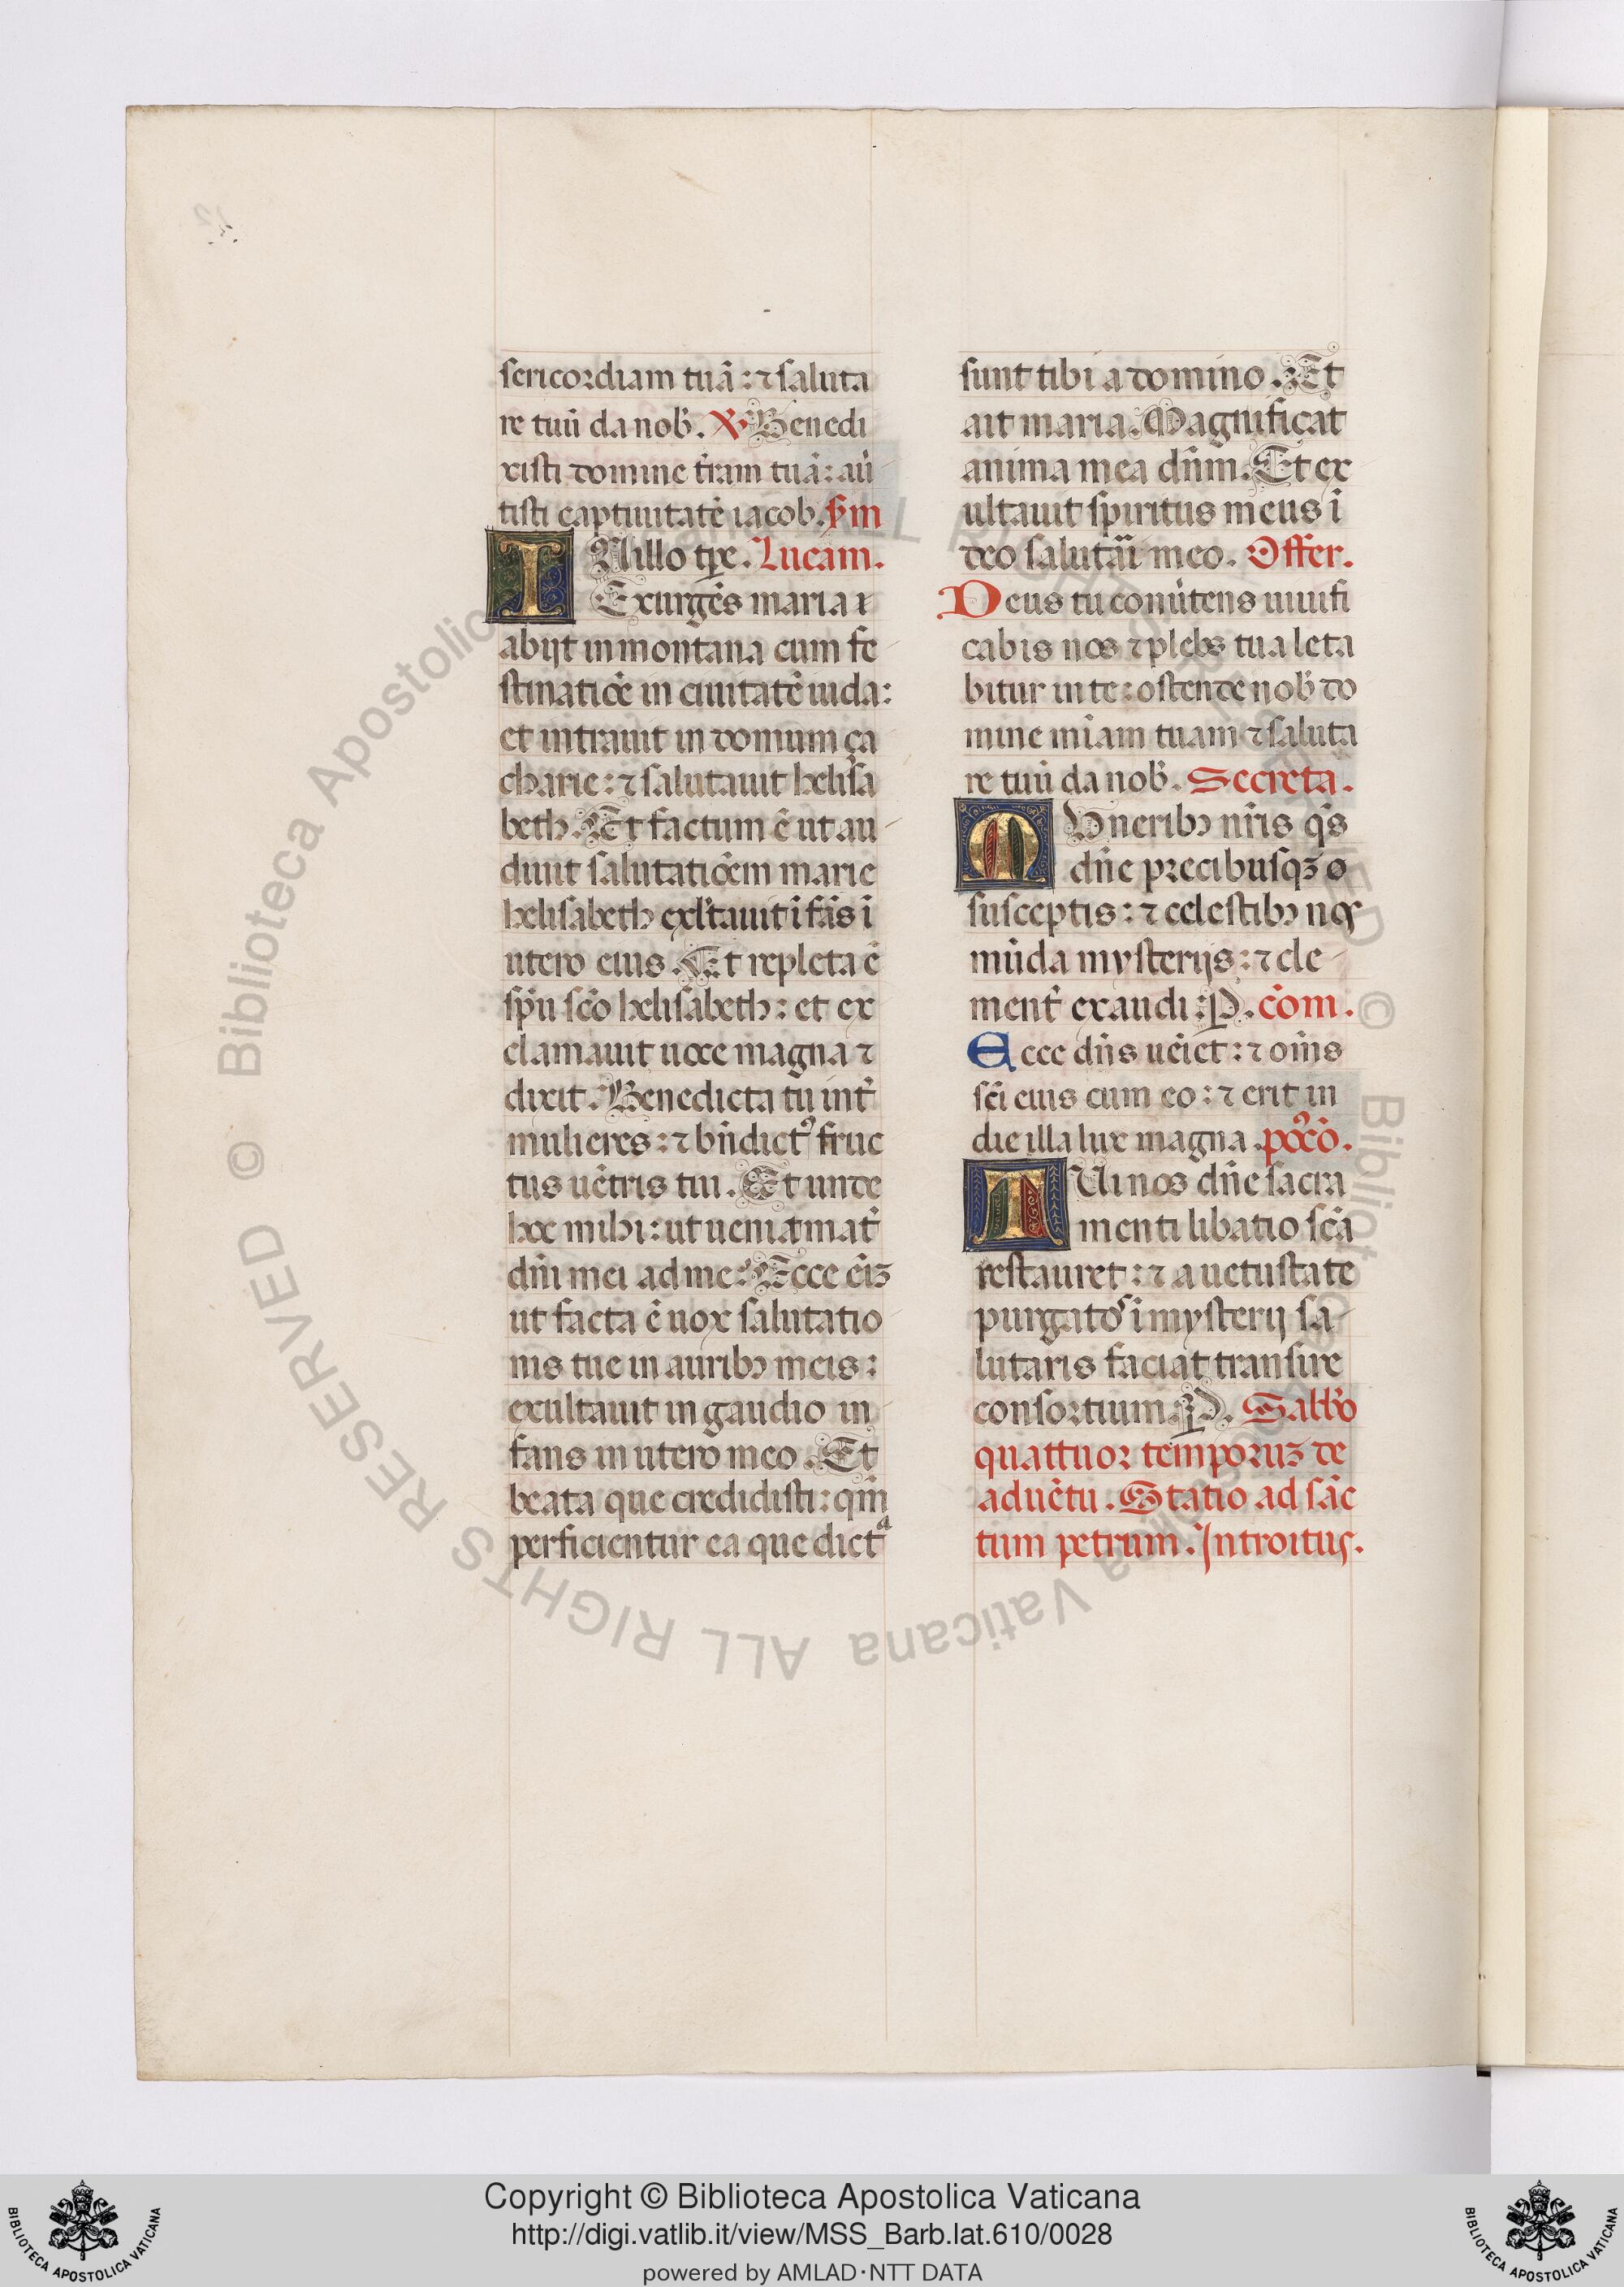 sericordiam tuā: ⁊ saluta
re tuū da nob̄. ℣ Benedi
xisti domine t̄ram tuā: aūͥ
tisti captiuitatē iacob. S̄m
IN illo tp̄re. Lucam.
Exurgēs maria ⁊
abijt in montana cum fe
stinatiōe in ciuitatē iuda:
et intrauit in domum ça
charie: ⁊ salutauit helisa
beth. Et factum ē ut au
diuit salutatiōem marie
helisabeth exl̄tauit ī fās ī
utero eius. Et repleta ē
sp̄u sc̄o helisabeth: et ex
clamauit uoce magna ⁊
dixit. Benedicta tu int̄
mulieres: ⁊ bn̄dictꝰ fruc
tus uētris tui. Et unde
hoc mihi: ut ueniat mat̄
dn̄i mei ad me: Ecce eīꝫ
ut facta ē uox salutatio
nis tue in auribꝫ meis:
exultauit in gaudio in
fans in utero meo. Et
beata que credidisti: qm̄
perficientur ea que dictᵃ
sunt tibi a domino. Et
ait maria. Magnificat
anima mea dn̄m. Et ex
ultauit spiritus meus ī
deo salutāi meo. Offer.
Deus tu conūtens uiuifi
cabis nos ⁊ plebs tua leta
bitur in te: ostende nob̄ do
mine mīam tuam ⁊ saluta
re tuū da nob̄. Secreta.
MUneribꝫ nr̄is qs̄
dn̄e precibusqꝫ
susceptis: ⁊ celestibꝫ nos
mūda mysterijs: ⁊ cle
ment̄ exaudi: P. cōm.
Ecce dn̄s uēiet: ⁊ oīns
sc̄i eius cum eo: ⁊ erit in
die illa lux magna. poꝰcō.
TUi nos dn̄e sacra
menti libatio sc̄a
restauret: ⁊ a uetustate
purgatos ī mysterij sa
lutaris faciat transire
consortium. P. Sabb̄o
quattuor temporuꝫ de
aduētu. Statio ad sāc
tum petrum. Introitus.
© Biblioteca Apostolica Vaticana ALL RIGHTS RESERVED
Copyright © Biblioteca Apostolica Vaticana
http://digi.vatlib.it/view/MSS_Barb.lat.610/0028
powered by AMLAD·NTT DATA
BIBLIOTECA APOSTOLICA VATICANA
BIBLIOTECA APOSTOLICA VATICANA